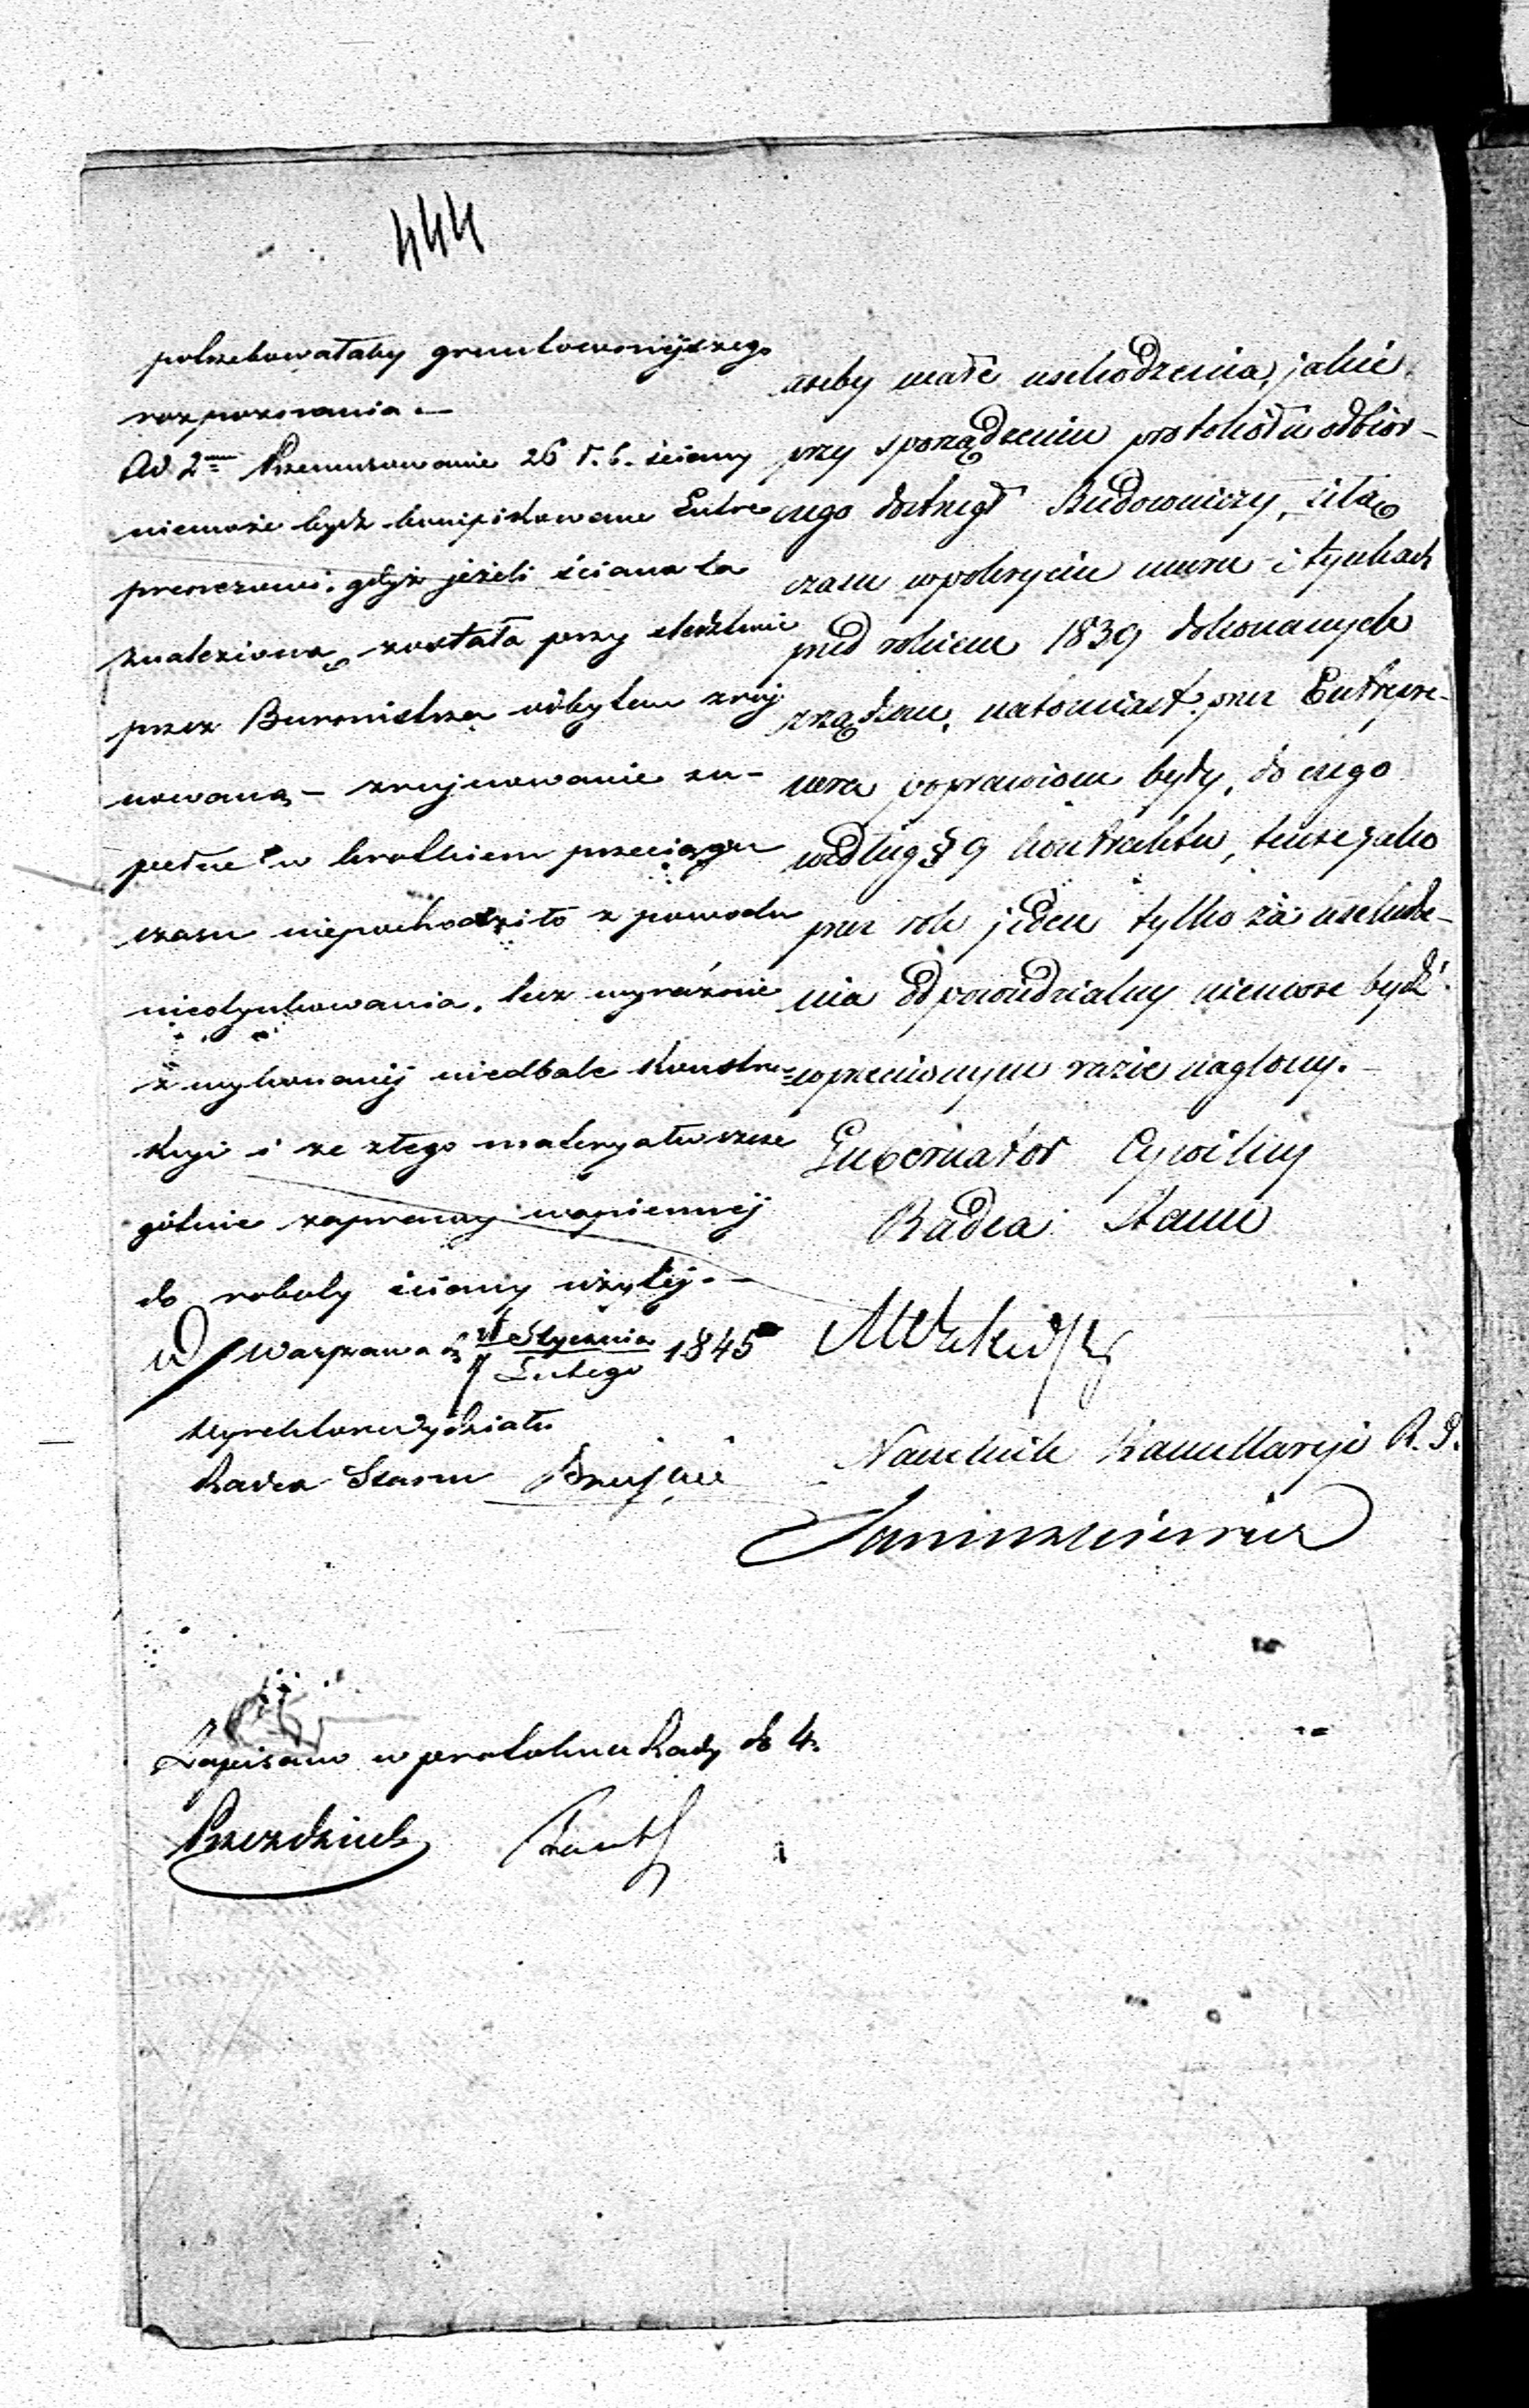 444
potrzebowałaby gruntowniejszego
rozpoznania.—
Ad 2um Przemurowanie 26 s. b. ściany
niemoże bydz bonifikowane Entre
prenerowi, gdyż jeżeli ściana ta
znaleziona została przy śledztwie
przez Burmistrza odbytem zruj
nowaną — zrujnowanie zu-
pełne w krótkiem przeciągu
czasu niepochodziło z powodu
nieotynkowania, lecz wyraźnie
z wykonanéj niedbale konstru-
kcyi i ze złego materyału szcze
gólnie zaprawy wapiennéj
do roboty ściany użytéj.—
w Warszawie d. Stycznia
Lutego 1845
Dyrektor Wydziału
Radca Stanu
ażeby małe uszkodzenia, jakie
przy sporządzeniu protokółu odbior-
czego dostrzegł Budowniczy, z itą
czasu w pokryciu muru i tynkach
pod rokiem 1839 dokonanych
zrządzone, natomiast przez Entrepre-
nera poprawione były, do czego
według § 9 kontraktu, tenże jako
przez rok jeden tylko za uszkodze-
nia odpowiedzialny niemoże bydź
w przeciwnym razie naglony.—
Gubernator Cywilny
Radca Stanu
Naczelnik Kancellaryi R. G.
Zapisano w protokule Rady do 4.